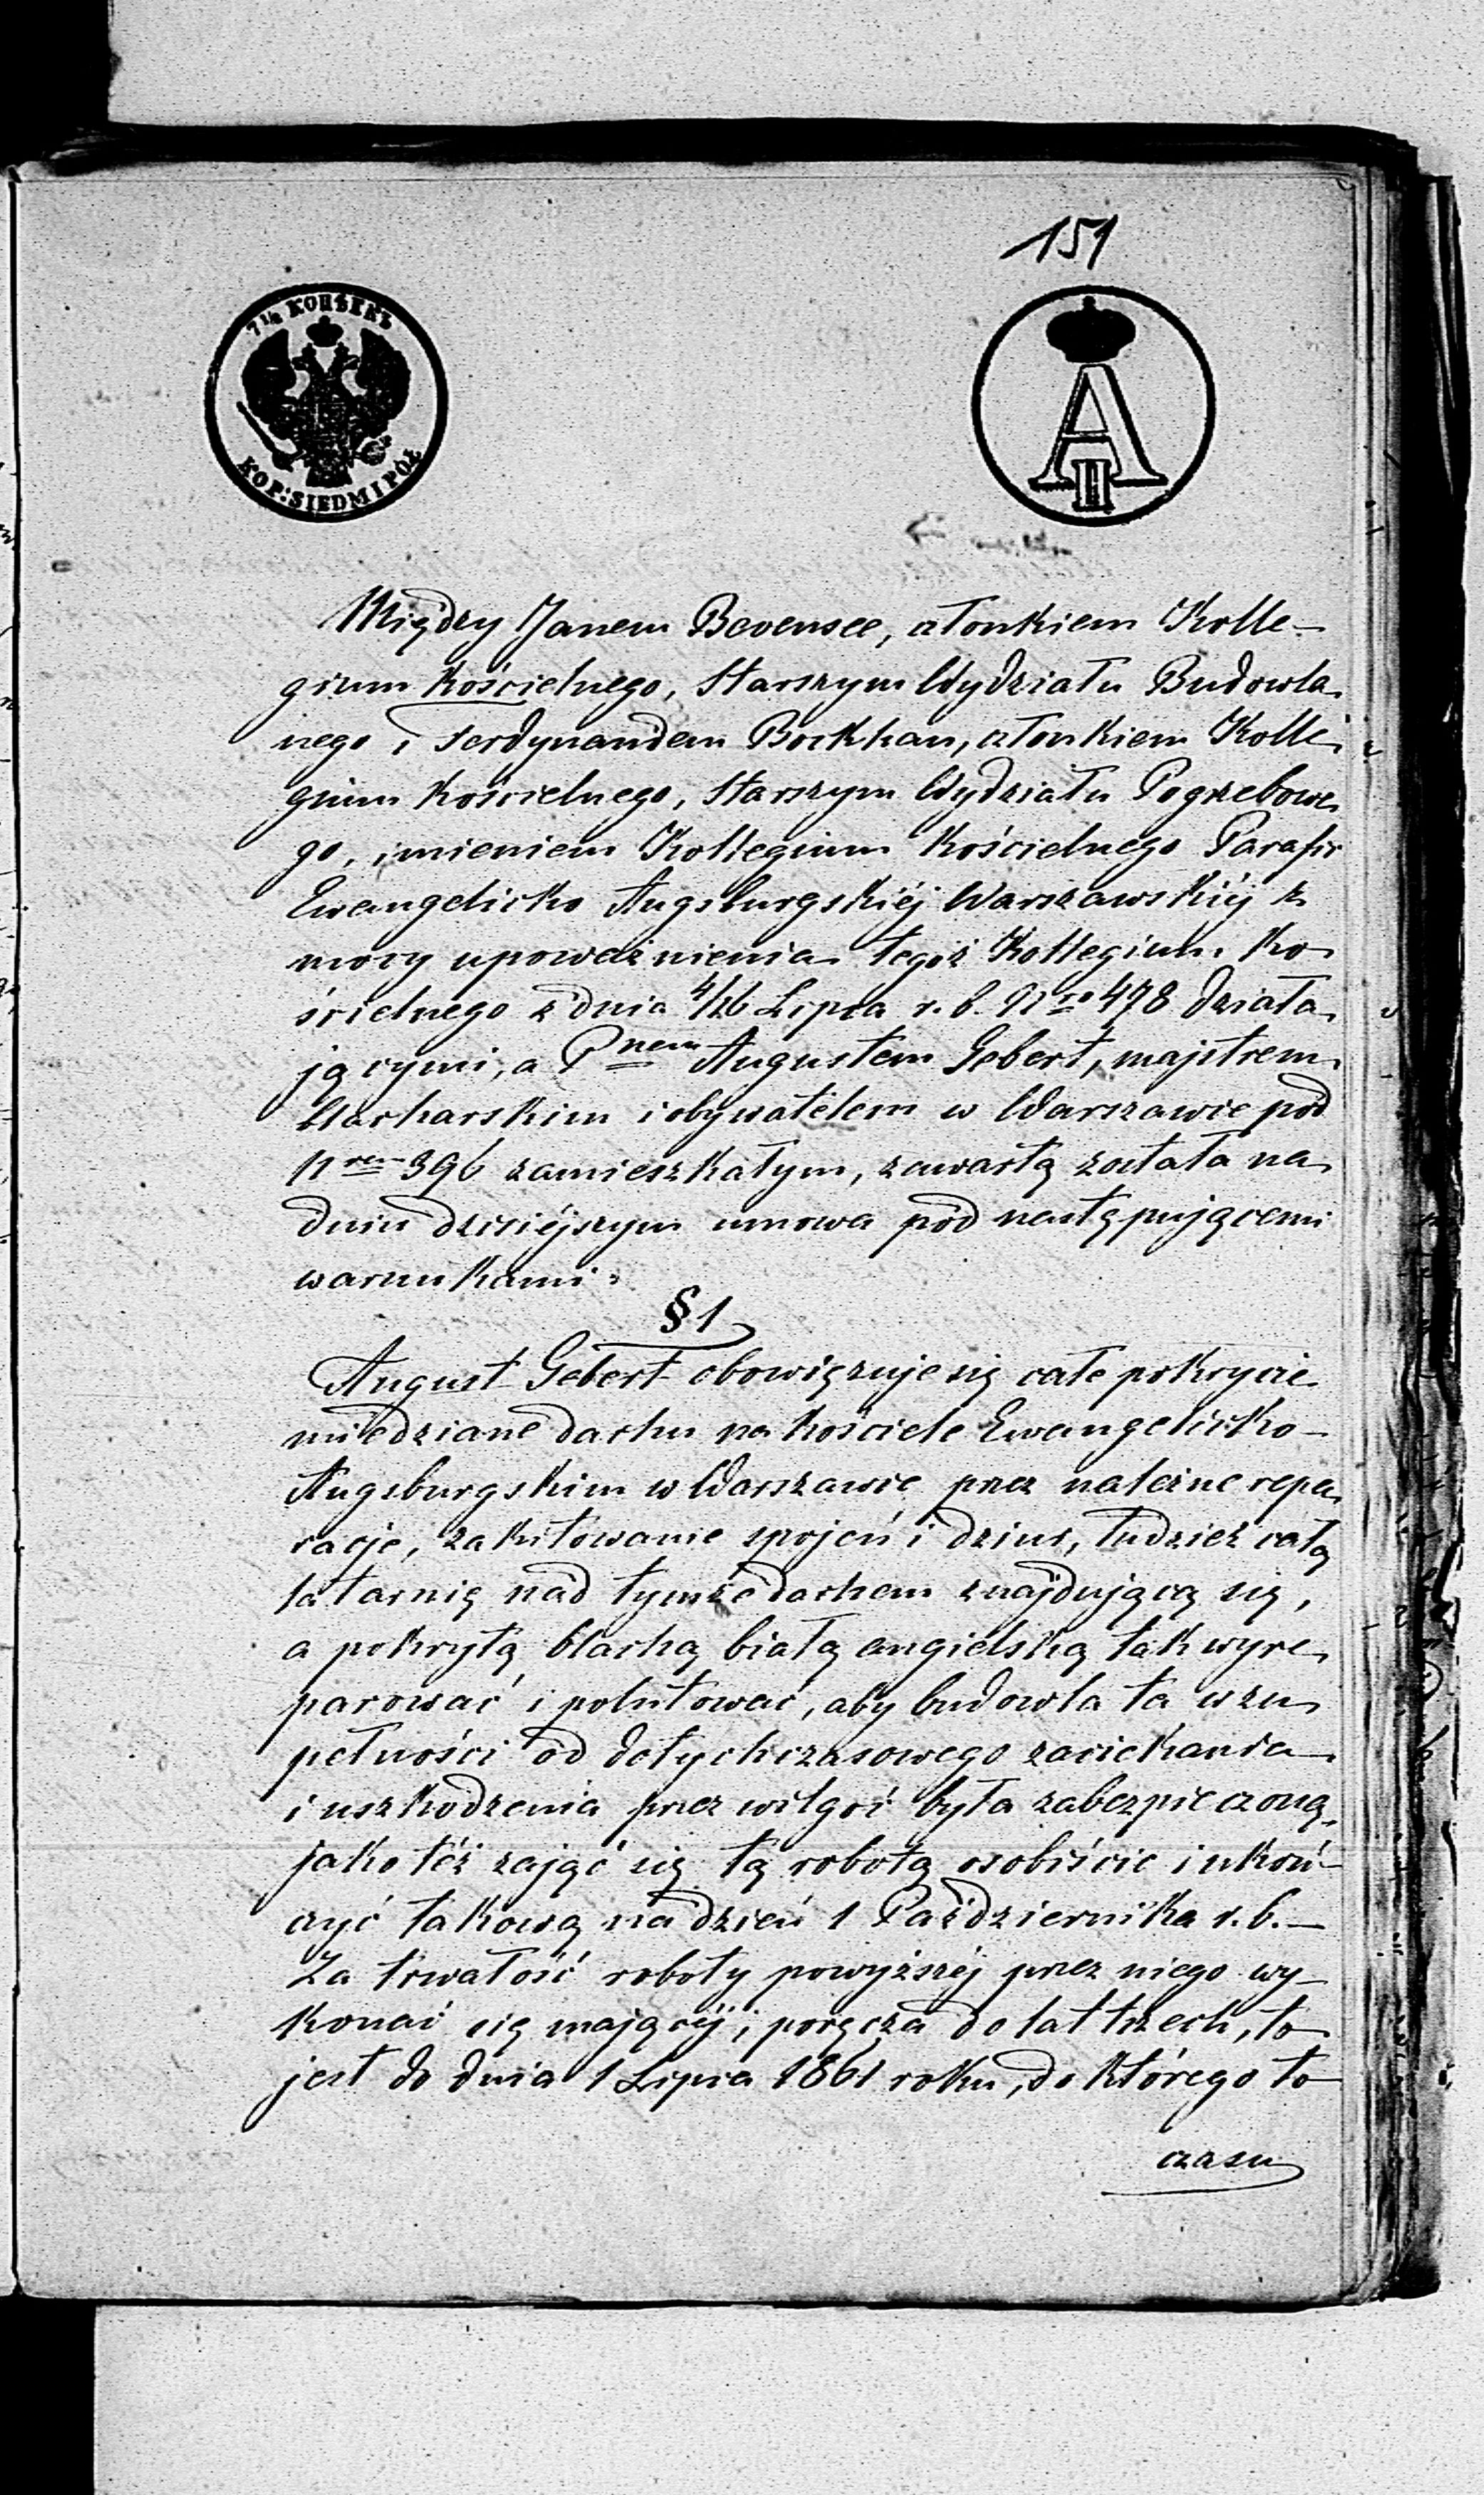 151
7 1/2 КОПѢЕКЪ
KOP: SIEDM I PÓŁ
A II
Między Janem Bevensee, członkiem Kolle-
gium Kościelnego, Starszym Wydziału Budowla-
nego i Ferdynandem Bockhan, członkiem Kolle-
gium Kościelnego, Starszym Wydziału Pogrzebowe-
go, imieniem Kollegium Kościelnego Parafii
Ewangelicko Augsburgskiéj Warszawskiéj z
mocy upoważnienia tegoż Kollegium Ko-
ścielnego z dnia 4/16 Lipca r. b. No 478 działa-
jącymi, a Pnem Augustem Gebert, majstrem
blacharskim i obywatelem w Warszawie pod
Nrem 396 zamieszkałym, zawartą została na
dniu dzisiéjszym umowa pod następującemi
warunkami:
§ 1
August Gebert obowiązuje się całe pokrycie
miedziane dachu na Kościele Ewangelicko-
Augsburgskim w Warszawie przez należne repa-
racje, zakitowanie spojeń i dziur, tudzież całą
latarnię nad tymże dachem znajdującą się,
a pokrytą blachą białą angielską tak wyre-
parować i polutować, aby budowla ta w zu-
pełności od dotychczasowego zaciekania
i uszkodzenia przez wilgoć była zabezpieczoną,
jako téż zająć się tą robotą osobiście i ukoń-
czyć takową na dzień 1 Października r. b. –
Za trwałość roboty powyższéj przez niego wy-
konać się mającéj, poręcza do lat trzech, to
jest do dnia 1 Lipca 1861 roku, do którego to
czasu